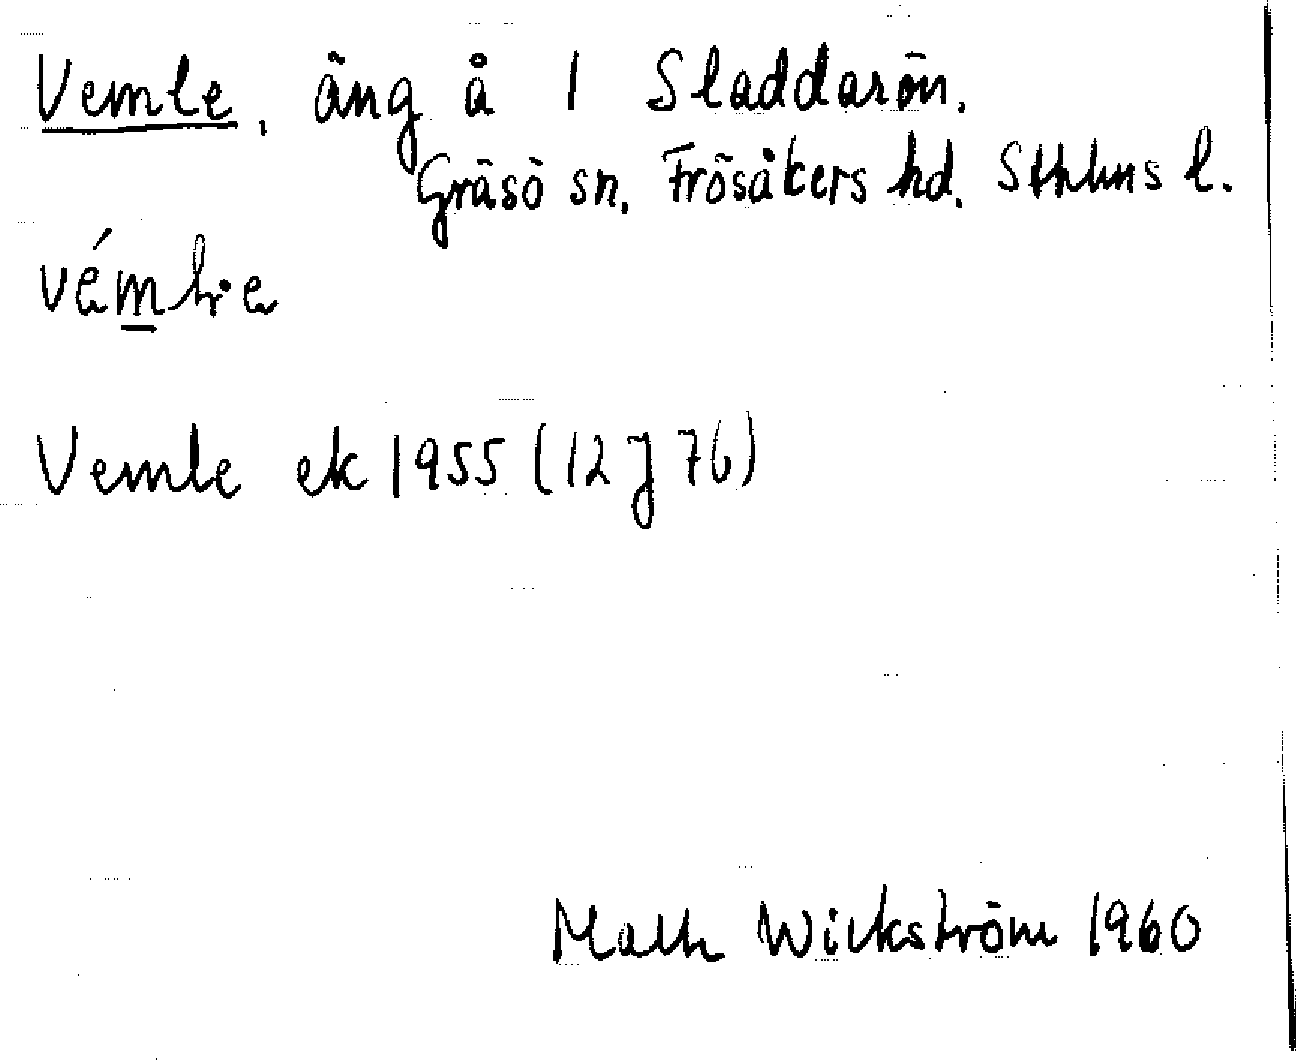 Vemle, äng å 1 Sladdarön.
Gräsö sn. Frösåkers hd. Sthlms l.
Vemle ek 1955 (12 J 76)
Wickström 1960